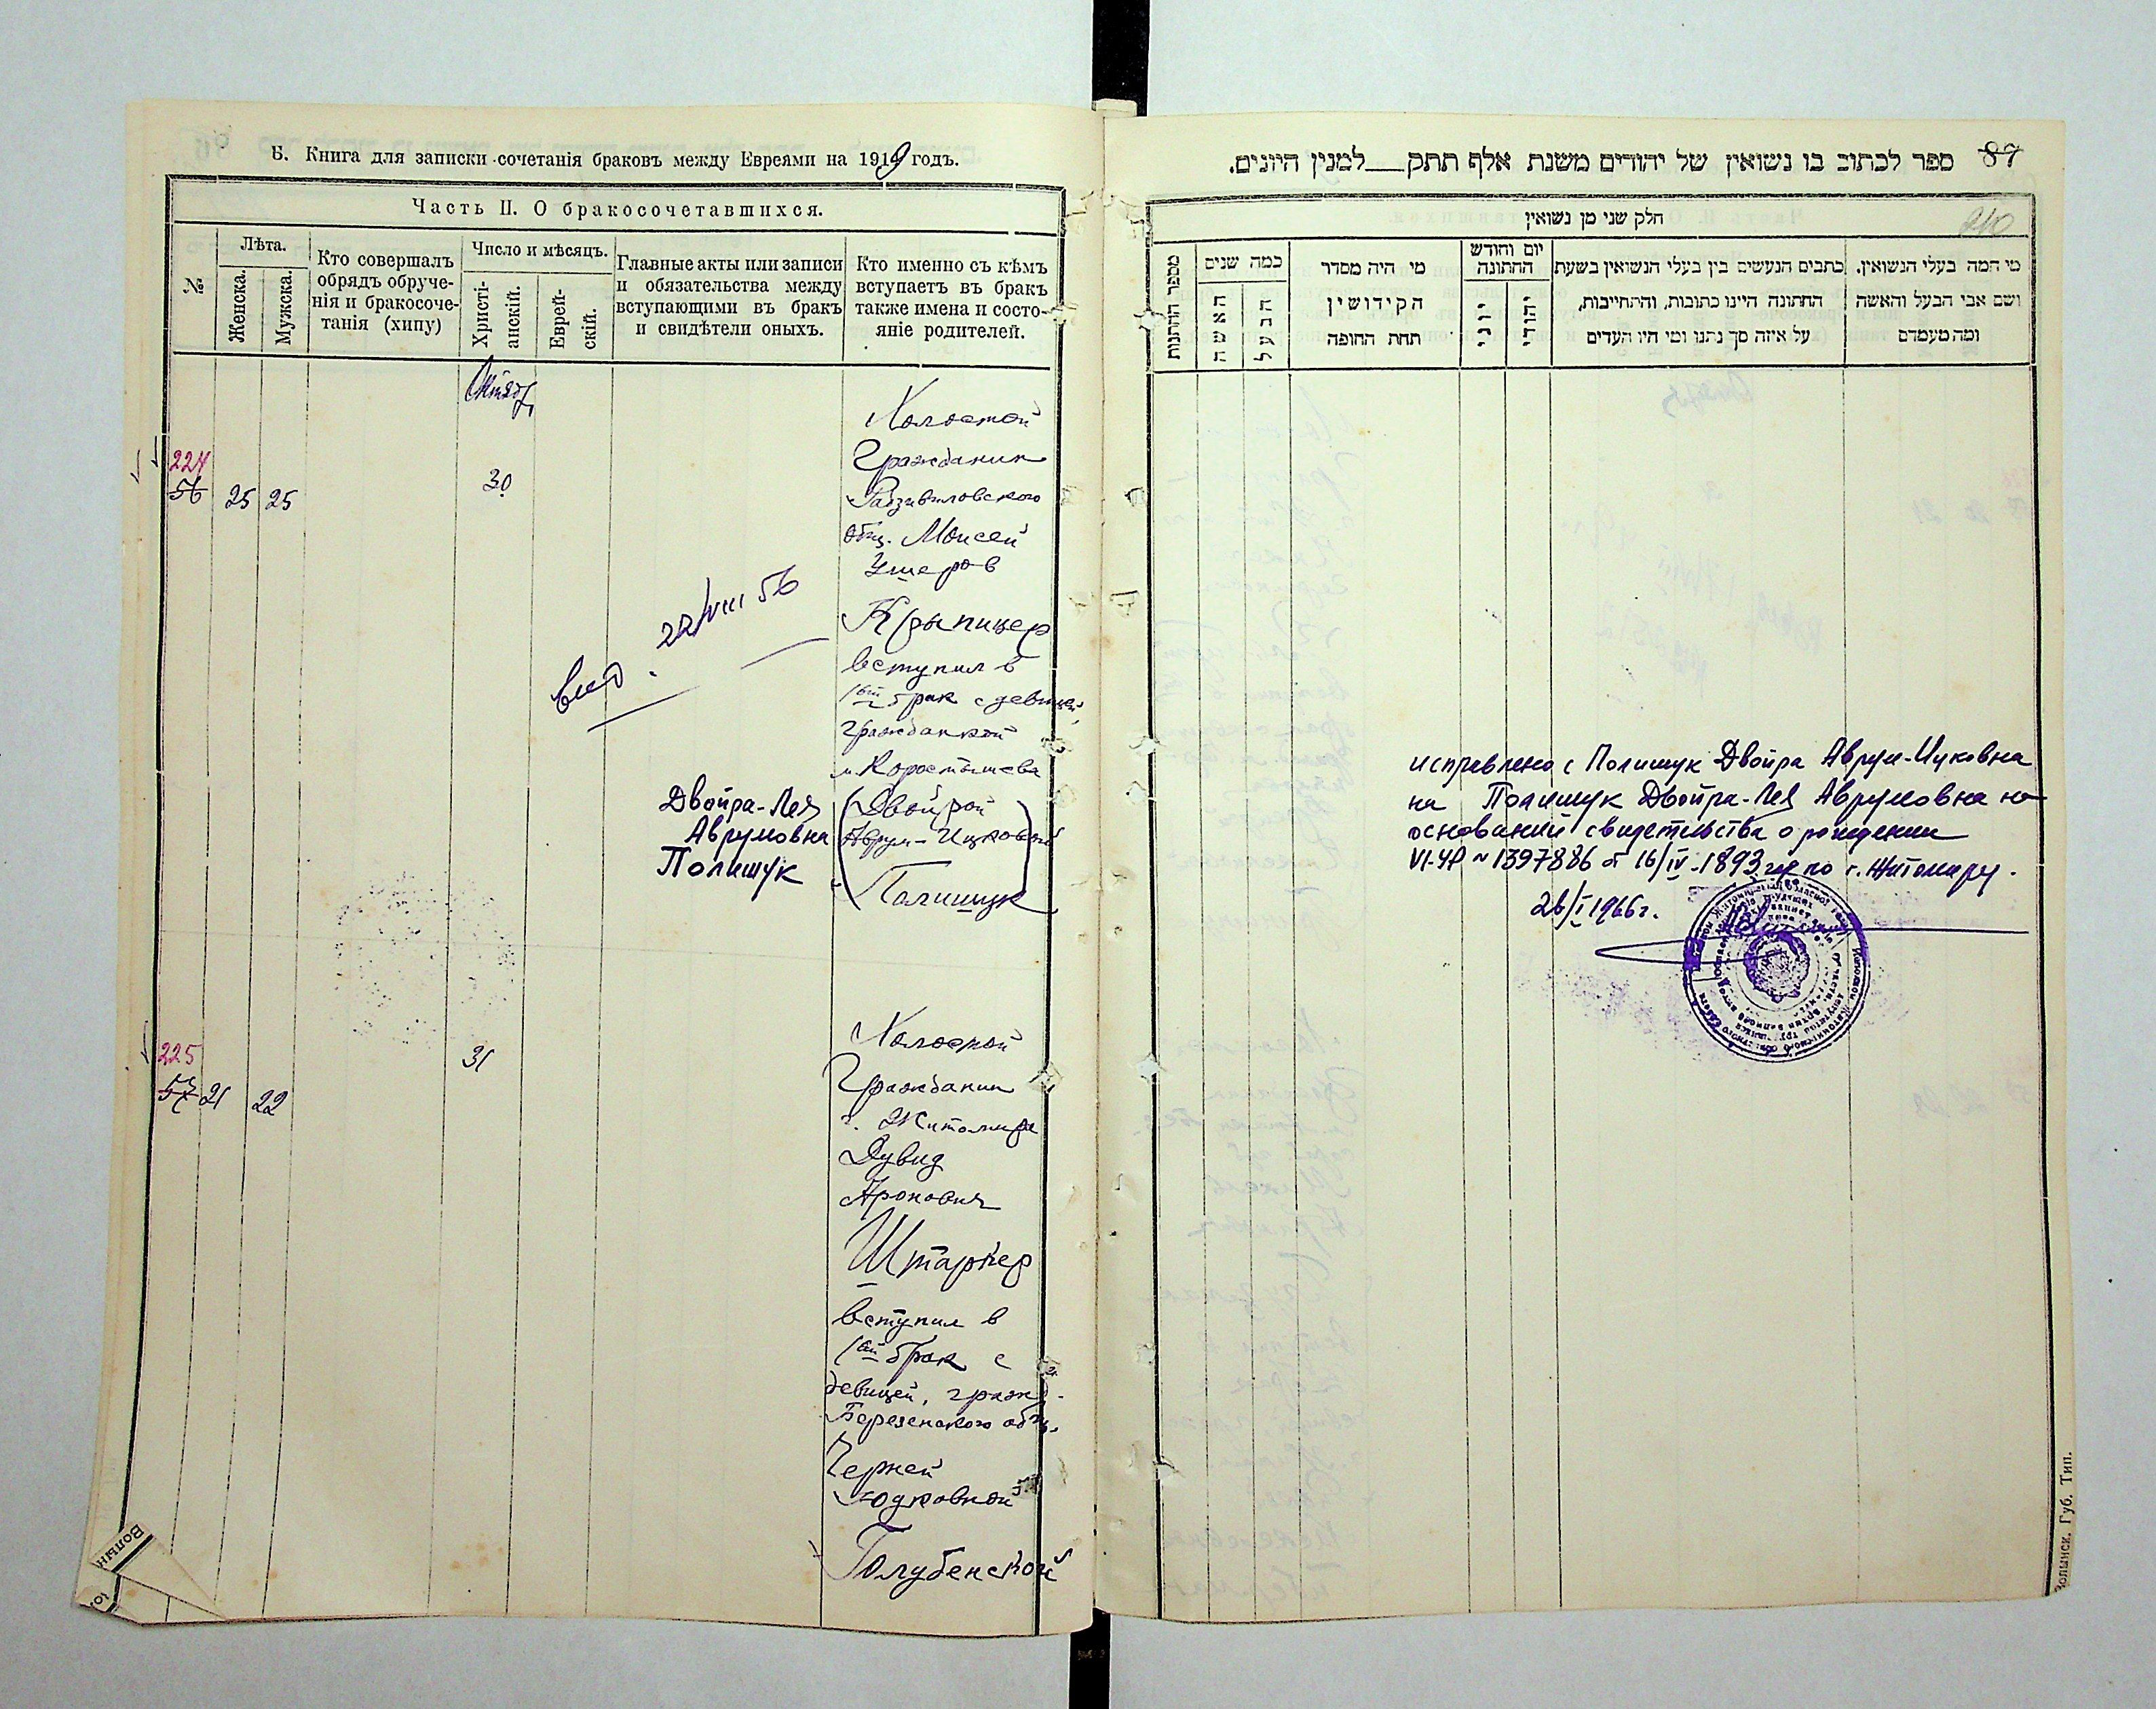 Б. Книга для записки сочетанія браковъ между Евреями на 1919 годъ.
Часть II. О бракосочетавшихся.
№
Лѣта.
Женска.
Мужска.
Кто совершалъ
обрядъ обруче-
нія и бракосоче-
танія (хипу)
Число и мѣсяцъ.
Христі-
анскій.
Еврей-
скій.
Главные акты или записи
и обязательства между
вступающими въ бракъ
и свидѣтели оныхъ.
Кто именно съ кѣмъ
вступаетъ въ бракъ
также имена и состо-
яніе родителей.
224
56
25
25
30
Холостой
Гражданин
Радзивиловского
общ. Моисей
Ушеров
Крыпицер
вступил в
1ый брак с девицей,
гражданкой
м. Коростышева
(Двойрой
Аврум-Ицковной)
Полищук
вид. 22/VIII 56
Двойра-Лея
Аврумовна
Полищук
225
57
21
22
31
Холостой
Гражданин
г. Житомира
Дувид
Аронович
Штаркер
вступил в
1ый брак с
девицей, гражд.
Березенского общ.
Черней
Голубенской
ספר לכתוב בו נשואין של יהודים משנת אלף תתק___למנין היונים.
87
210
חלק שני מן נשואין
מספר החתונות
כמה שנים
האשה
הבעל
מי היה מסדר
הקידושין
תחת החופה
יום וחודש
החתונה
יוני
יהודי
כתבים הנעשים בין בעלי הנשואין בשעת
החתונה היינו כתובות, והתחייבות,
על איזה סך נתנו ומי היו העדים
מי המה בעלי הנשואין.
ושם אבי הבעל והאשה
ומה מעמדם
исправлено с Полищук Двойра Аврум-Ицковна
на Полищук Двойра-Лея Аврумовна на
основании свидетельства о рождении
VI-УР № 1397886 от 16/IV-1893 года по г. Житомиру.
26/I 1966 г.
Волынск. Губ. Тип.
Волын